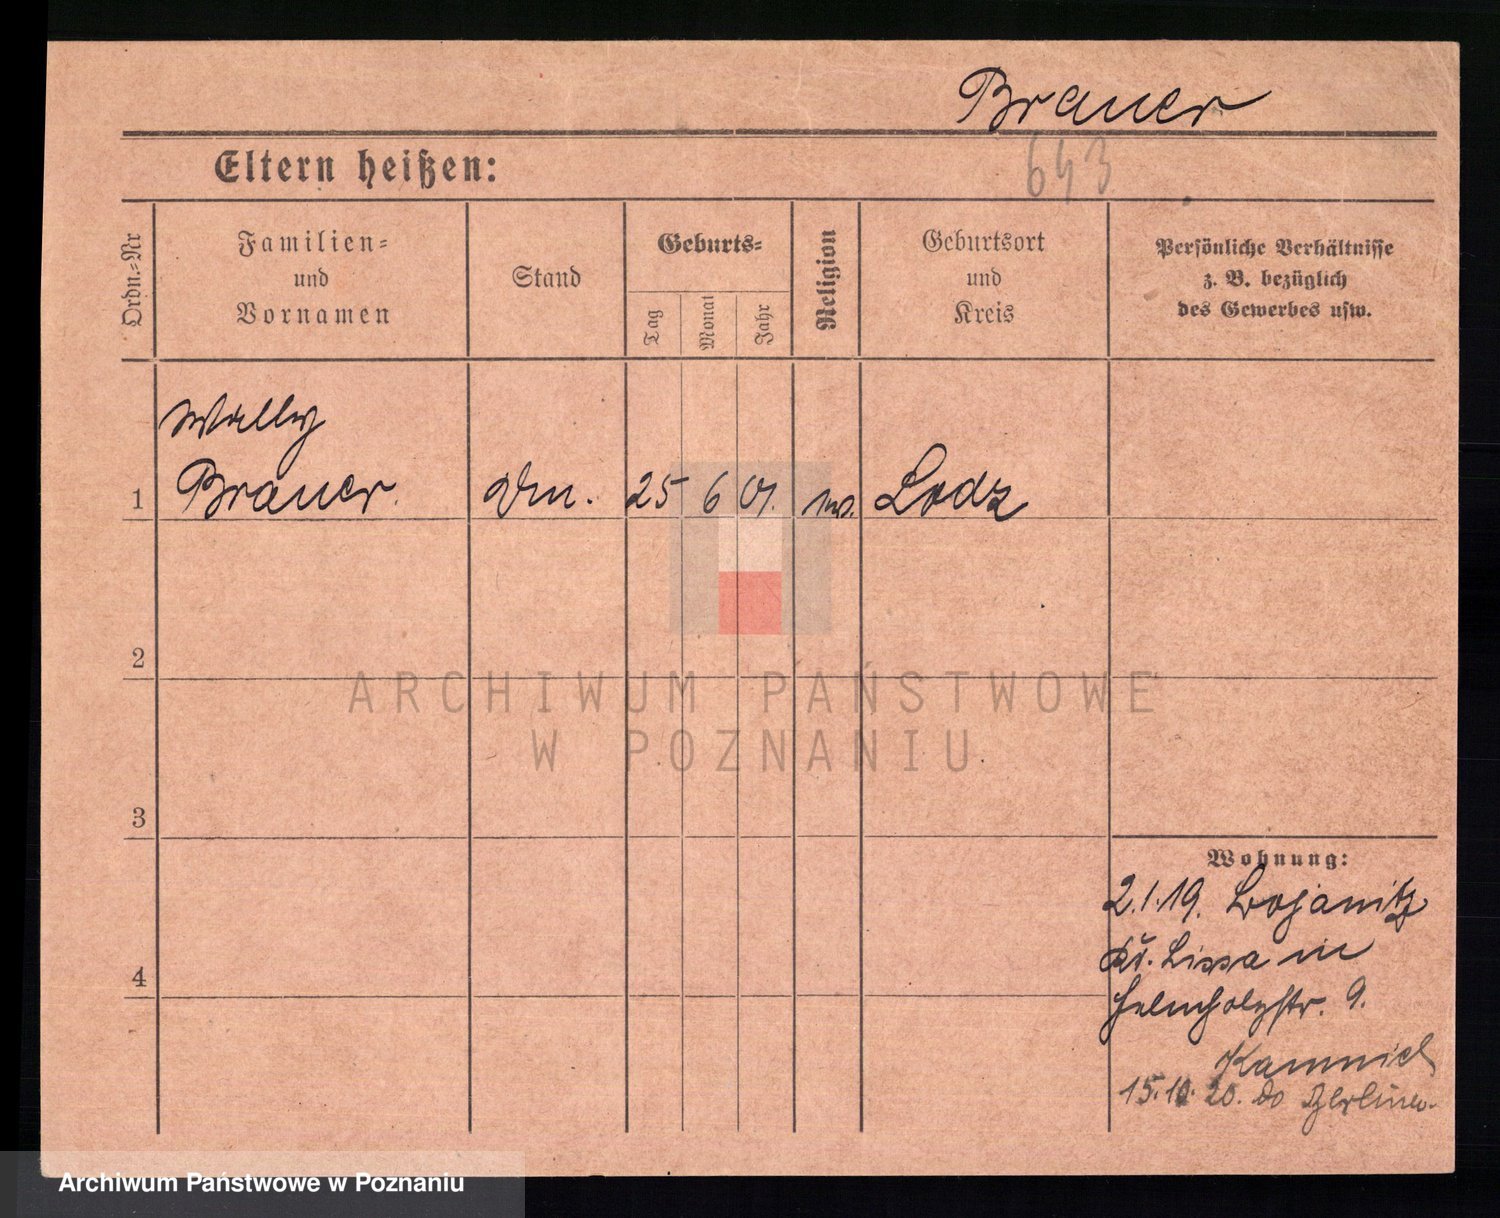 Brauer
643
Eltern heißen:
Ordn.=Nr
Familien=
und
Vornamen
Stand
Geburts=
Tag
Monat
Jahr
Religion
Geburtsort
und
Kreis
Persönliche Verhältnisse
z. B. bezüglich
des Gewerbes usw.
Willy
1 Brauer 25 6 01. Lodz
2
3
4
Wohnung:
2.1.19. Lojanitz
Kr. Lissa in
Helmholzstr. 9.
15.10.20.
ARCHIWUM PAŃSTWOWE
W POZNANIU
Archiwum Państwowe w Poznaniu